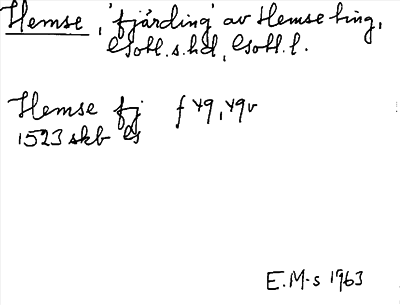 Hemse, 'fjärding' av Hemse ting,
Gotl. s. hd, Gotl. l.
Hemse fj f 49, 49v
1523 skb
E.M-s 1963